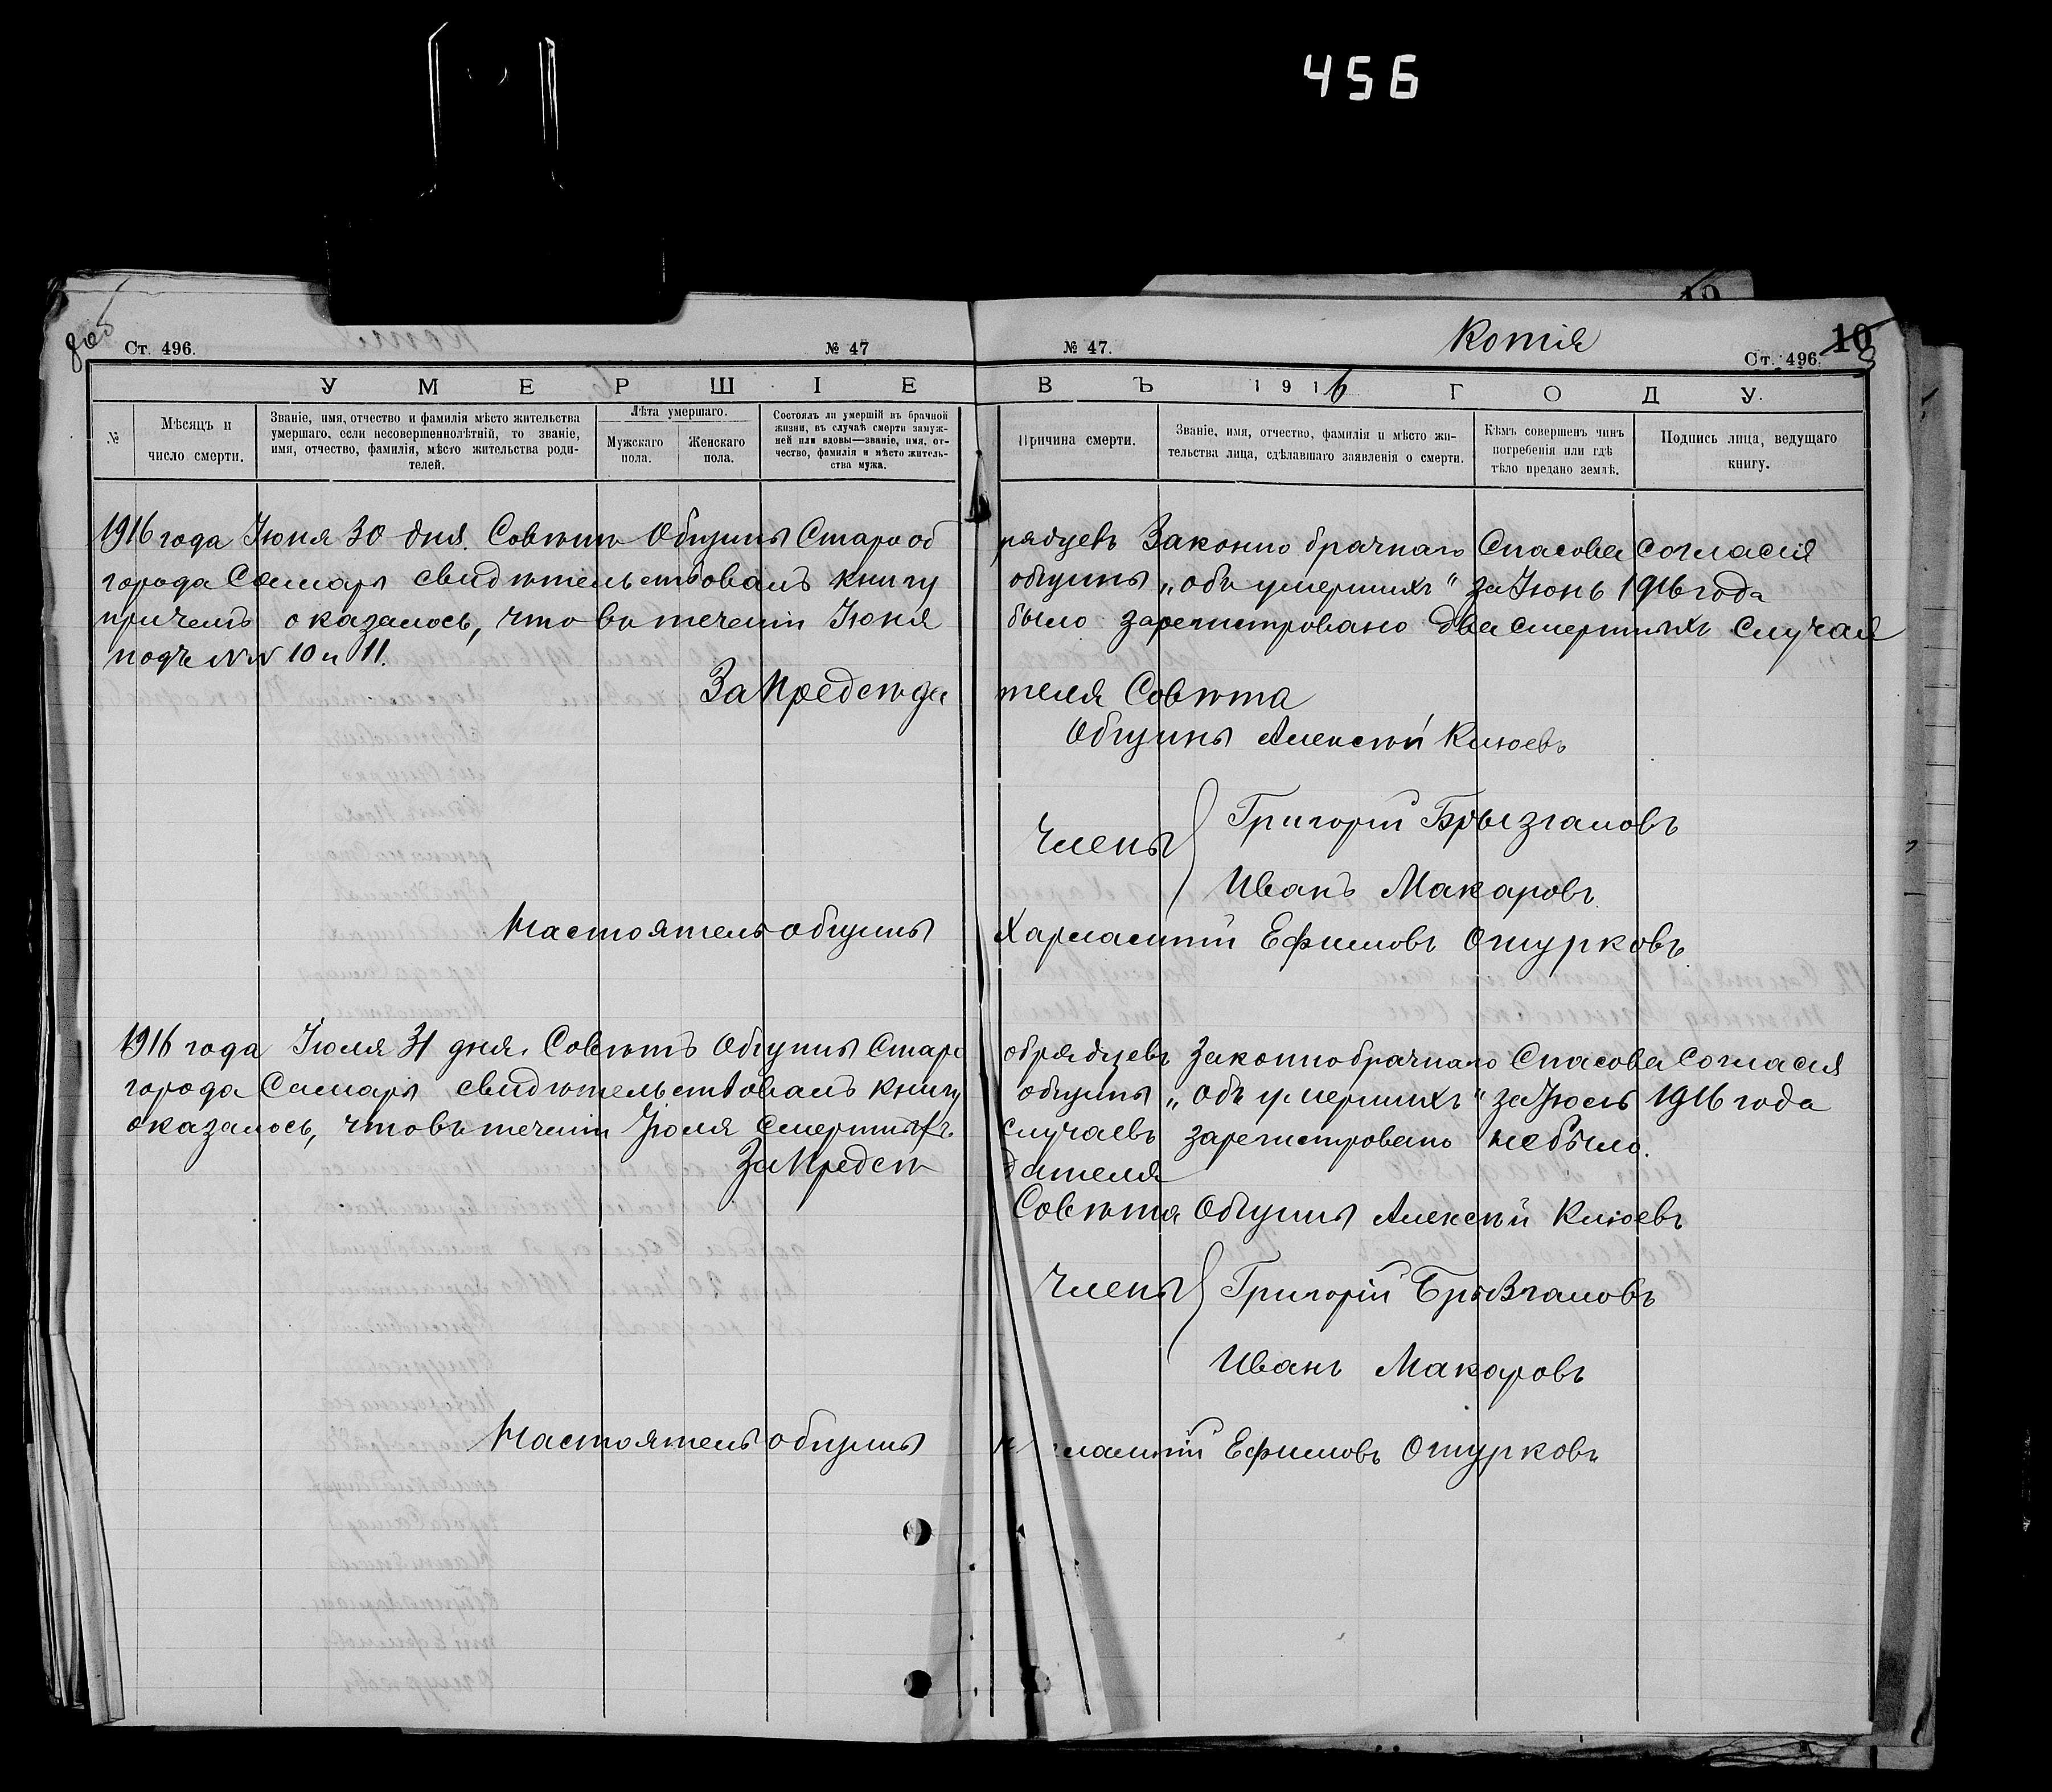 456
Копія
10
Ст. 496.
№ 47
№ 47.
Ст. 496.
УМЕРШІЕ
ВЪ 1916 ГОДУ.
№
Мѣсяцъ и число смерти.
Званіе, имя, отчество и фамилія мѣсто жительства умершаго, если несовершеннолѣтній, то званіе, имя, отчество, фамилія, мѣсто жительства родителей.
Лѣта умершаго.
Мужскаго пола.
Женскаго пола.
Состоялъ ли умершій въ брачной жизни, въ случаѣ смерти замужней или вдовы—званіе, имя, отчество, фамилія и мѣсто жительства мужа.
Причина смерти.
Званіе, имя, отчество, фамилія и мѣсто жительства лица, сдѣлавшаго заявленія о смерти.
Кѣмъ совершенъ чинъ погребенія или гдѣ тѣло предано землѣ.
Подпись лица, ведущаго книгу.
1916 года Іюня 30 дня. Совѣтъ Общины Старооб рядцевъ Законно брачнаго Спасова согласія
города Самары свидѣтельствовалъ книгу общины „объ умершихъ" за Іюнь 1916 года
причемъ оказалось, что въ теченіи Іюня было зарегистровано два смертныхъ случая
подъ NN 10 и 11.
За Предсѣда теля Совѣта
Общины Алексѣй Клюевъ
Члены Григорій Брызгаловъ
Иванъ Макаровъ
Настоятель общины Харлампій Ефимовъ Отурковъ
1916 года Іюля 31 дня. Совѣтъ Общины Старо обрядцевъ Законнобрачнаго Спасова Согласія
города Самары свидѣтельствовалъ книгу общины „объ умершихъ" за Іюль 1916 года
оказалось, что въ теченіи Іюля смертныхъ случаевъ зарегистровано не было.
За Предсѣ дателя
Совѣта Общины Алексѣй Клюевъ
Члены Григорій Брызгаловъ
Иванъ Макаровъ
Настоятель общины лампій Ефимовъ Отурковъ